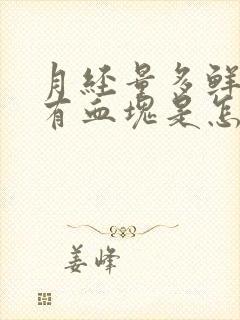 月经量多鲜
有血块是怎
姜峰